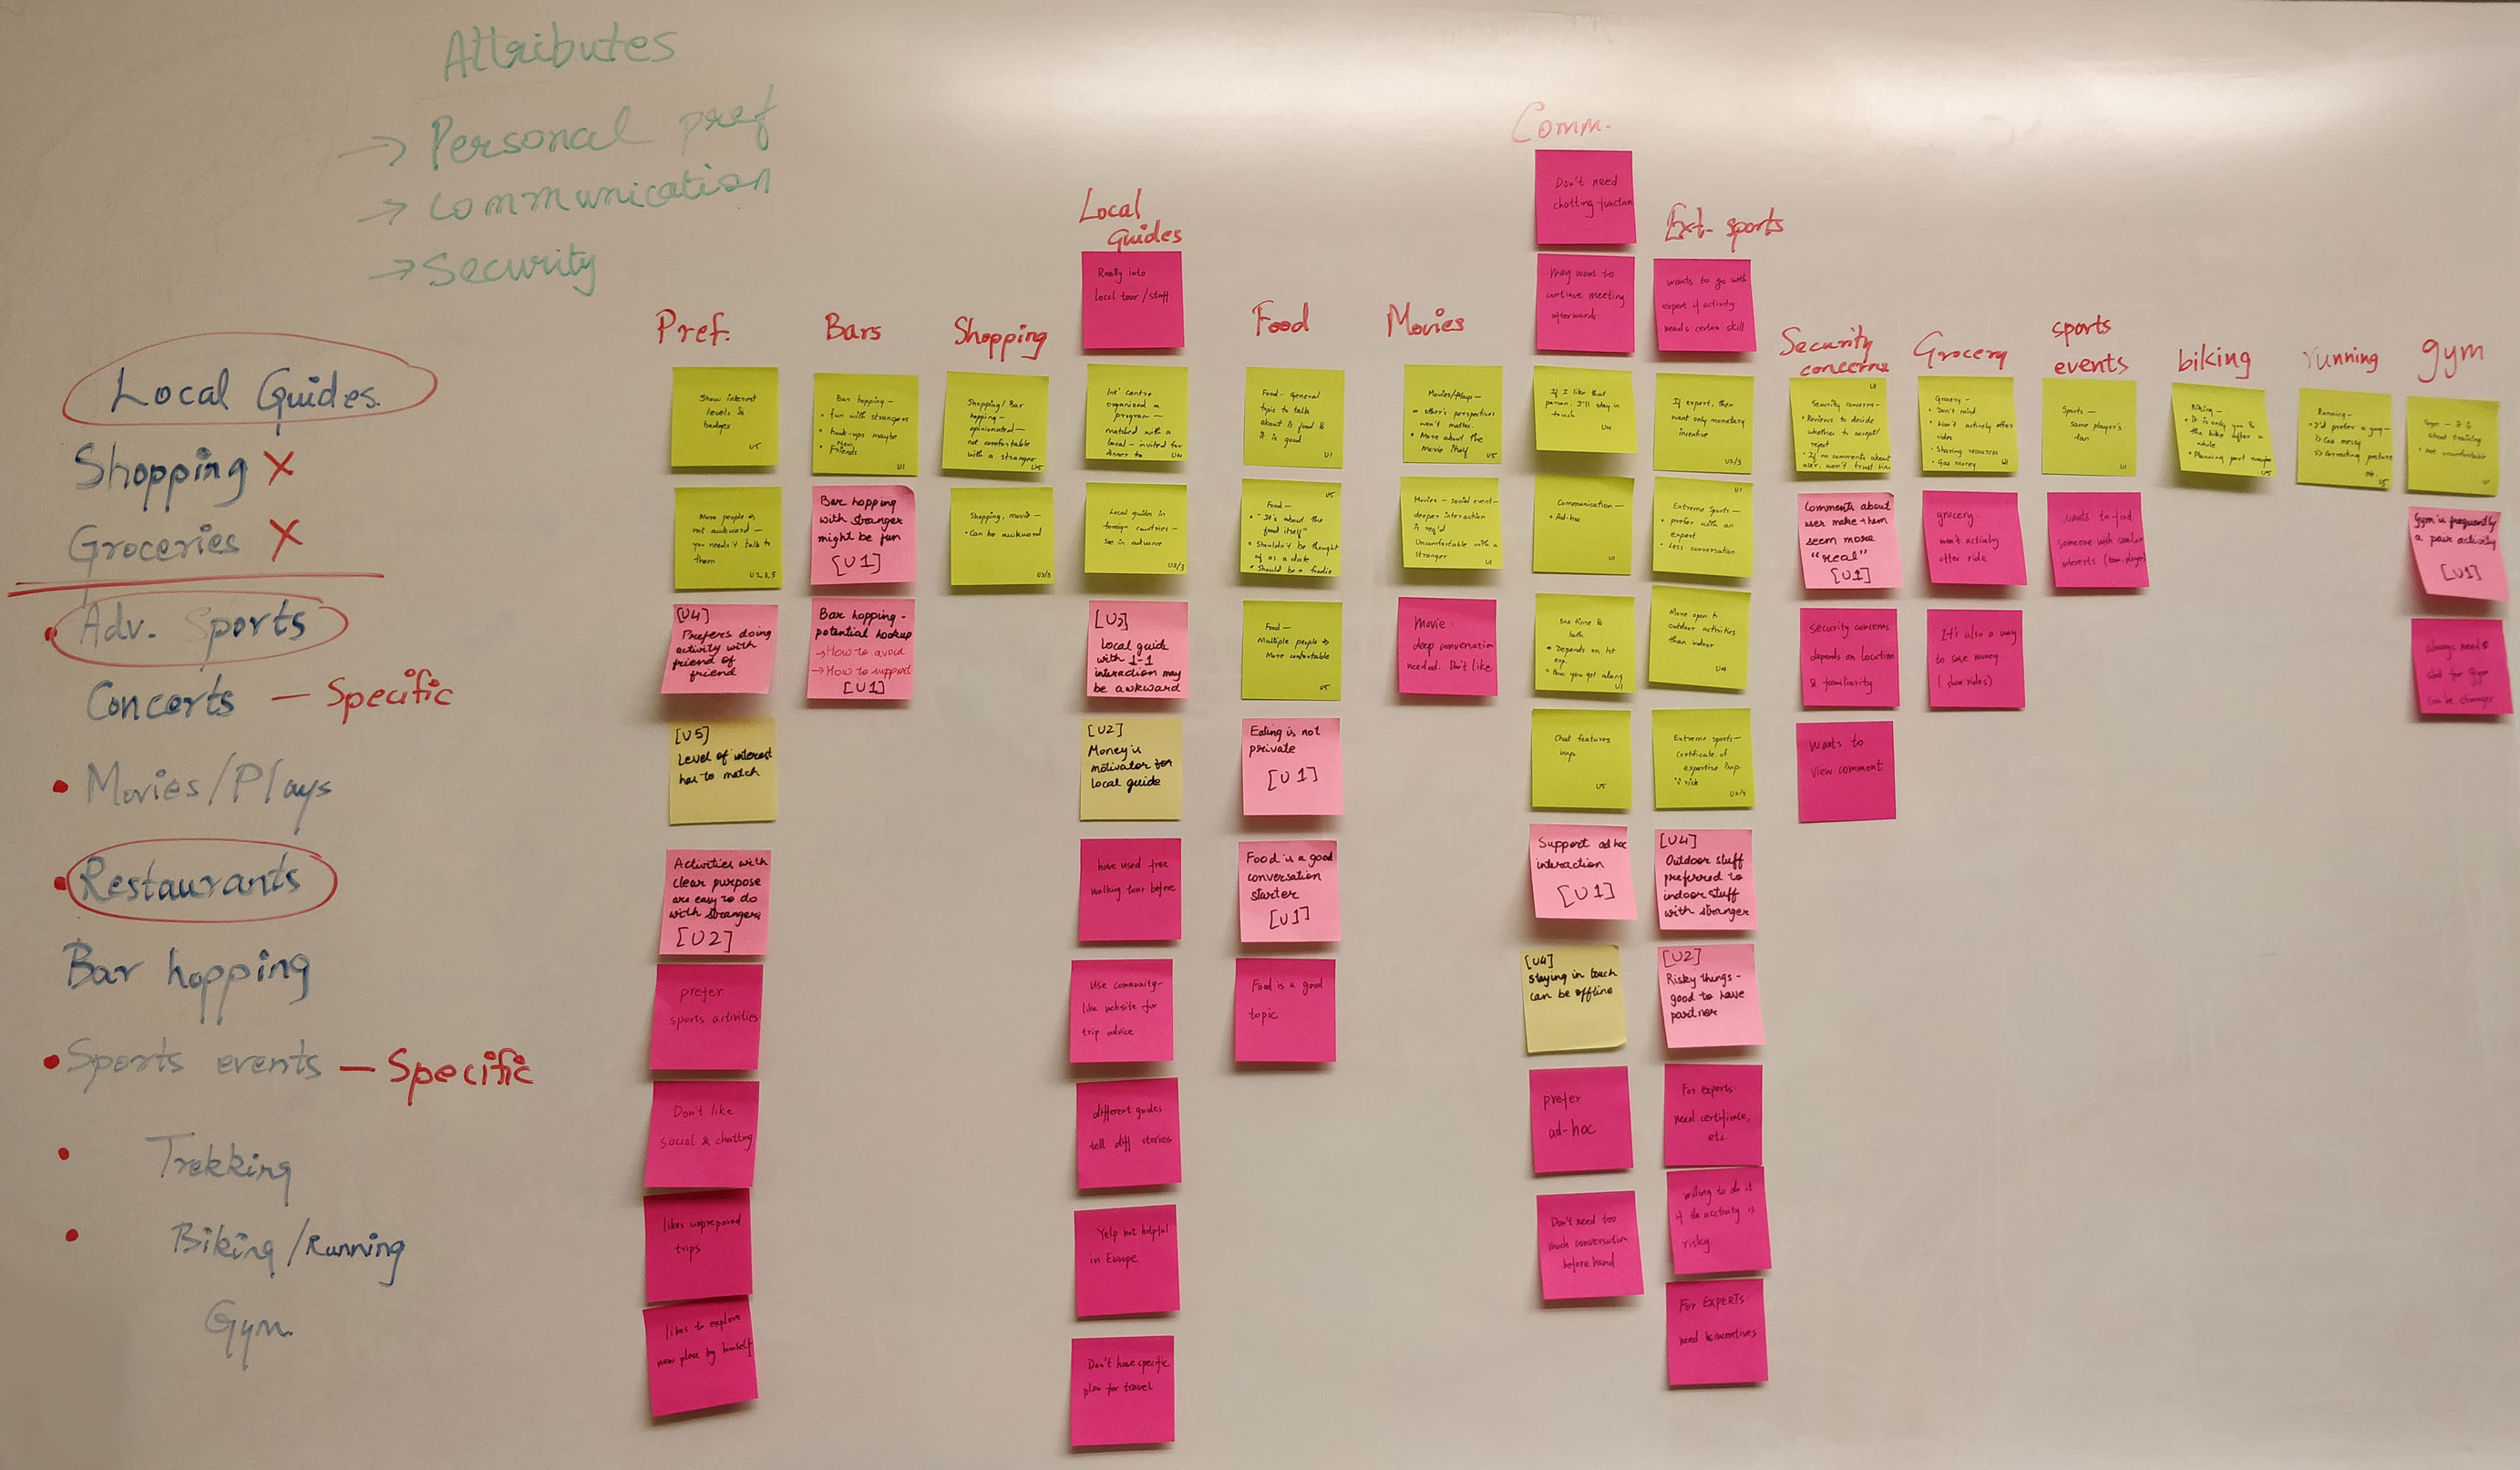 Attributes
→ Personal pref
→ Communication
→ Security
Local Guides
Shopping X
Groceries X
Adv. Sports
Concerts — Specific
Movies/Plays
Restaurants
Bar hopping
Sports events — Specific
Trekking
Biking/Running
Gym
Pref.
Show interest
levels &
badges
U5
More people →
not awkward —
you needn't talk to
them
U2,3,5
[U4]
Prefers doing
activity with
friend of
friend
[U5]
Level of interest
has to match
Activities with
clear purpose
are easy to do
with strangers
[U2]
prefer
sports activities
Don't like
social & chatting
likes unprepared
trips
likes to explore
new place by himself
Bars
Bar hopping —
• fun with strangers
• hook-ups maybe
• New Friends
U1
Bar hopping
with stranger
might be fun
[U1]
Bar hopping -
potential hookup
→ How to avoid
→ How to support
[U1]
Shopping
Shopping/Bar
hopping —
opinionated —
not comfortable
with a stranger
U5
Shopping, movie —
• Can be awkward
U2/3
Local
guides
Really into
local tour/stuff
Int' centre
organised a
program —
matched with a
local — invited for
dinner to
U4
Local guide in
foreign countries —
see in advance
U2/3
Local guide
with 1-1
interaction may
be awkward
[U2]
Money is
motivator for
local guide
have used free
walking tour before
Use community-
like website for
trip advice
different guides
tell diff stories
Yelp not helpful
in Europe
Don't have specific
plan for travel
Food
Food - general
topic to talk
about is food &
it is good
U1
U5
Food —
• "It's about the
food itself"
• Shouldn't be thought
of as a date
• Should be a foodie
Food —
Multiple people →
More comfortable
U5
Eating is not
private
[U1]
Food is a good
conversation
starter
[U1]
Food is a good
topic
Movies
Movies/Plays —
• other's perspectives
won't matter
• More about the
movie itself
U5
Movies — social event —
deeper interaction
is req'd
Uncomfortable with a
stranger
U1
Movie:
deep conversation
needed. Don't like
Comm.
Don't need
chatting function
May want to
continue meeting
afterwards
If I like that
person, I'll stay in
touch
U4
Communication —
• Ad-hoc
U1
One time &
both
• Depends on 1st
exp.
• How you get along
U1
Chat features
imp
U5
Support ad hoc
interaction
[U1]
[U4]
Staying in touch
can be offline
prefer
ad-hoc
Don't need too
much conversation
before hand
Ext. sports
wants to go with
expert if activity
needs certain skill
If expert, then
want only monetary
incentive
U2/3
U1
Extreme Sports —
• prefer with an
expert
• Less conversation
More open to
outdoor activities
than indoor
U4
Extreme sports —
Certificate of
expertise imp
∵ risk
U2/3
[U4]
Outdoor stuff
preferred to
indoor stuff
with stranger
[U2]
Risky things -
good to have
partner
For experts
need certificate,
etc.
willing to do it
if the activity is
risky
For EXPERTS:
need incentives
Security
concerns
U1
Security concerns —
• Reviews to decide
whether to accept/
reject
• If no comments about
user, won't trust him
Comments about
user make them
seem more
"real"
[U1]
Security concerns
depends on location
& familiarity
Wants to
view comment
Grocery
Grocery —
• Don't mind
• Won't actively offer
rides
• Sharing resources
• Gas money
U1
grocery:
won't actively
offer ride
It's also a way
to save money
(share rides)
sports
events
Sports —
same player's
fan
U1
wants to find
someone with similar
interests (team, player)
biking
Biking —
• It is only you &
the bike after a
while
• Planning part maybe
U5
running
Running —
• I'd prefer a gym —
Correcting posture
etc.
U5
gym
Gym — it is
about training
• Not uncomfortable
Gym is frequently
a pair activity
[U1]